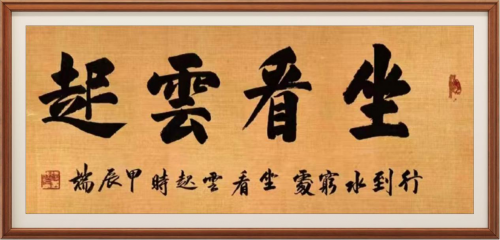 坐看雲起
行到水窮處坐看雲起時甲辰端